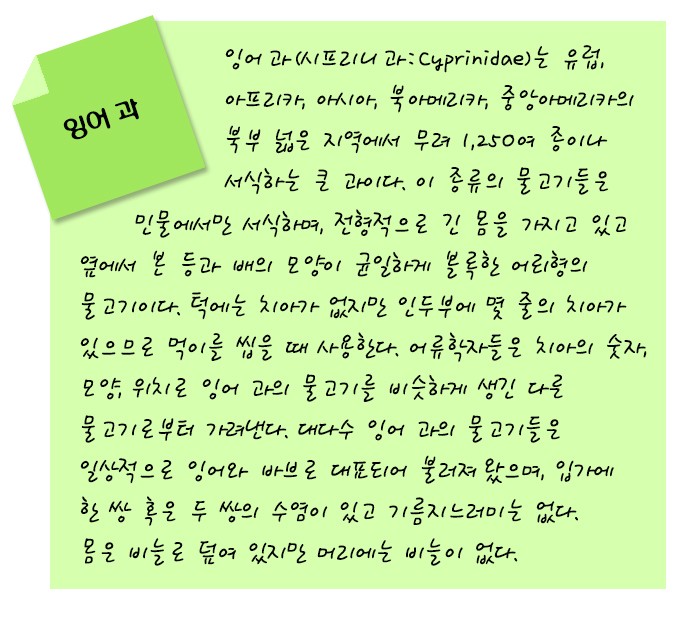 잉어 과
잉어 과(시프리니 과:Cyprinidae)는 유럽,
아프리카, 아시아, 북아메리카, 중앙아메리카의
북부 넓은 지역에서 무려 1,250여 종이나
서식하는 큰 과이다. 이 종류의 물고기들은
민물에서만 서식하며, 전형적으로 긴 몸을 가지고 있고
옆에서 본 등과 배의 모양이 균일하게 볼록한 어뢰형의
물고기이다. 턱에는 치아가 없지만 인두부에 몇 줄의 치아가
있으므로 먹이를 씹을 때 사용한다. 어류학자들은 치아의 숫자,
모양, 위치로 잉어 과의 물고기를 비슷하게 생긴 다른
물고기로부터 가려낸다. 대다수 잉어 과의 물고기들은
일상적으로 잉어와 바브로 대표되어 불려져 왔으며, 입가에
한 쌍 혹은 두 쌍의 수염이 있고 기름지느러미는 없다.
몸은 비늘로 덮여 있지만 머리에는 비늘이 없다.